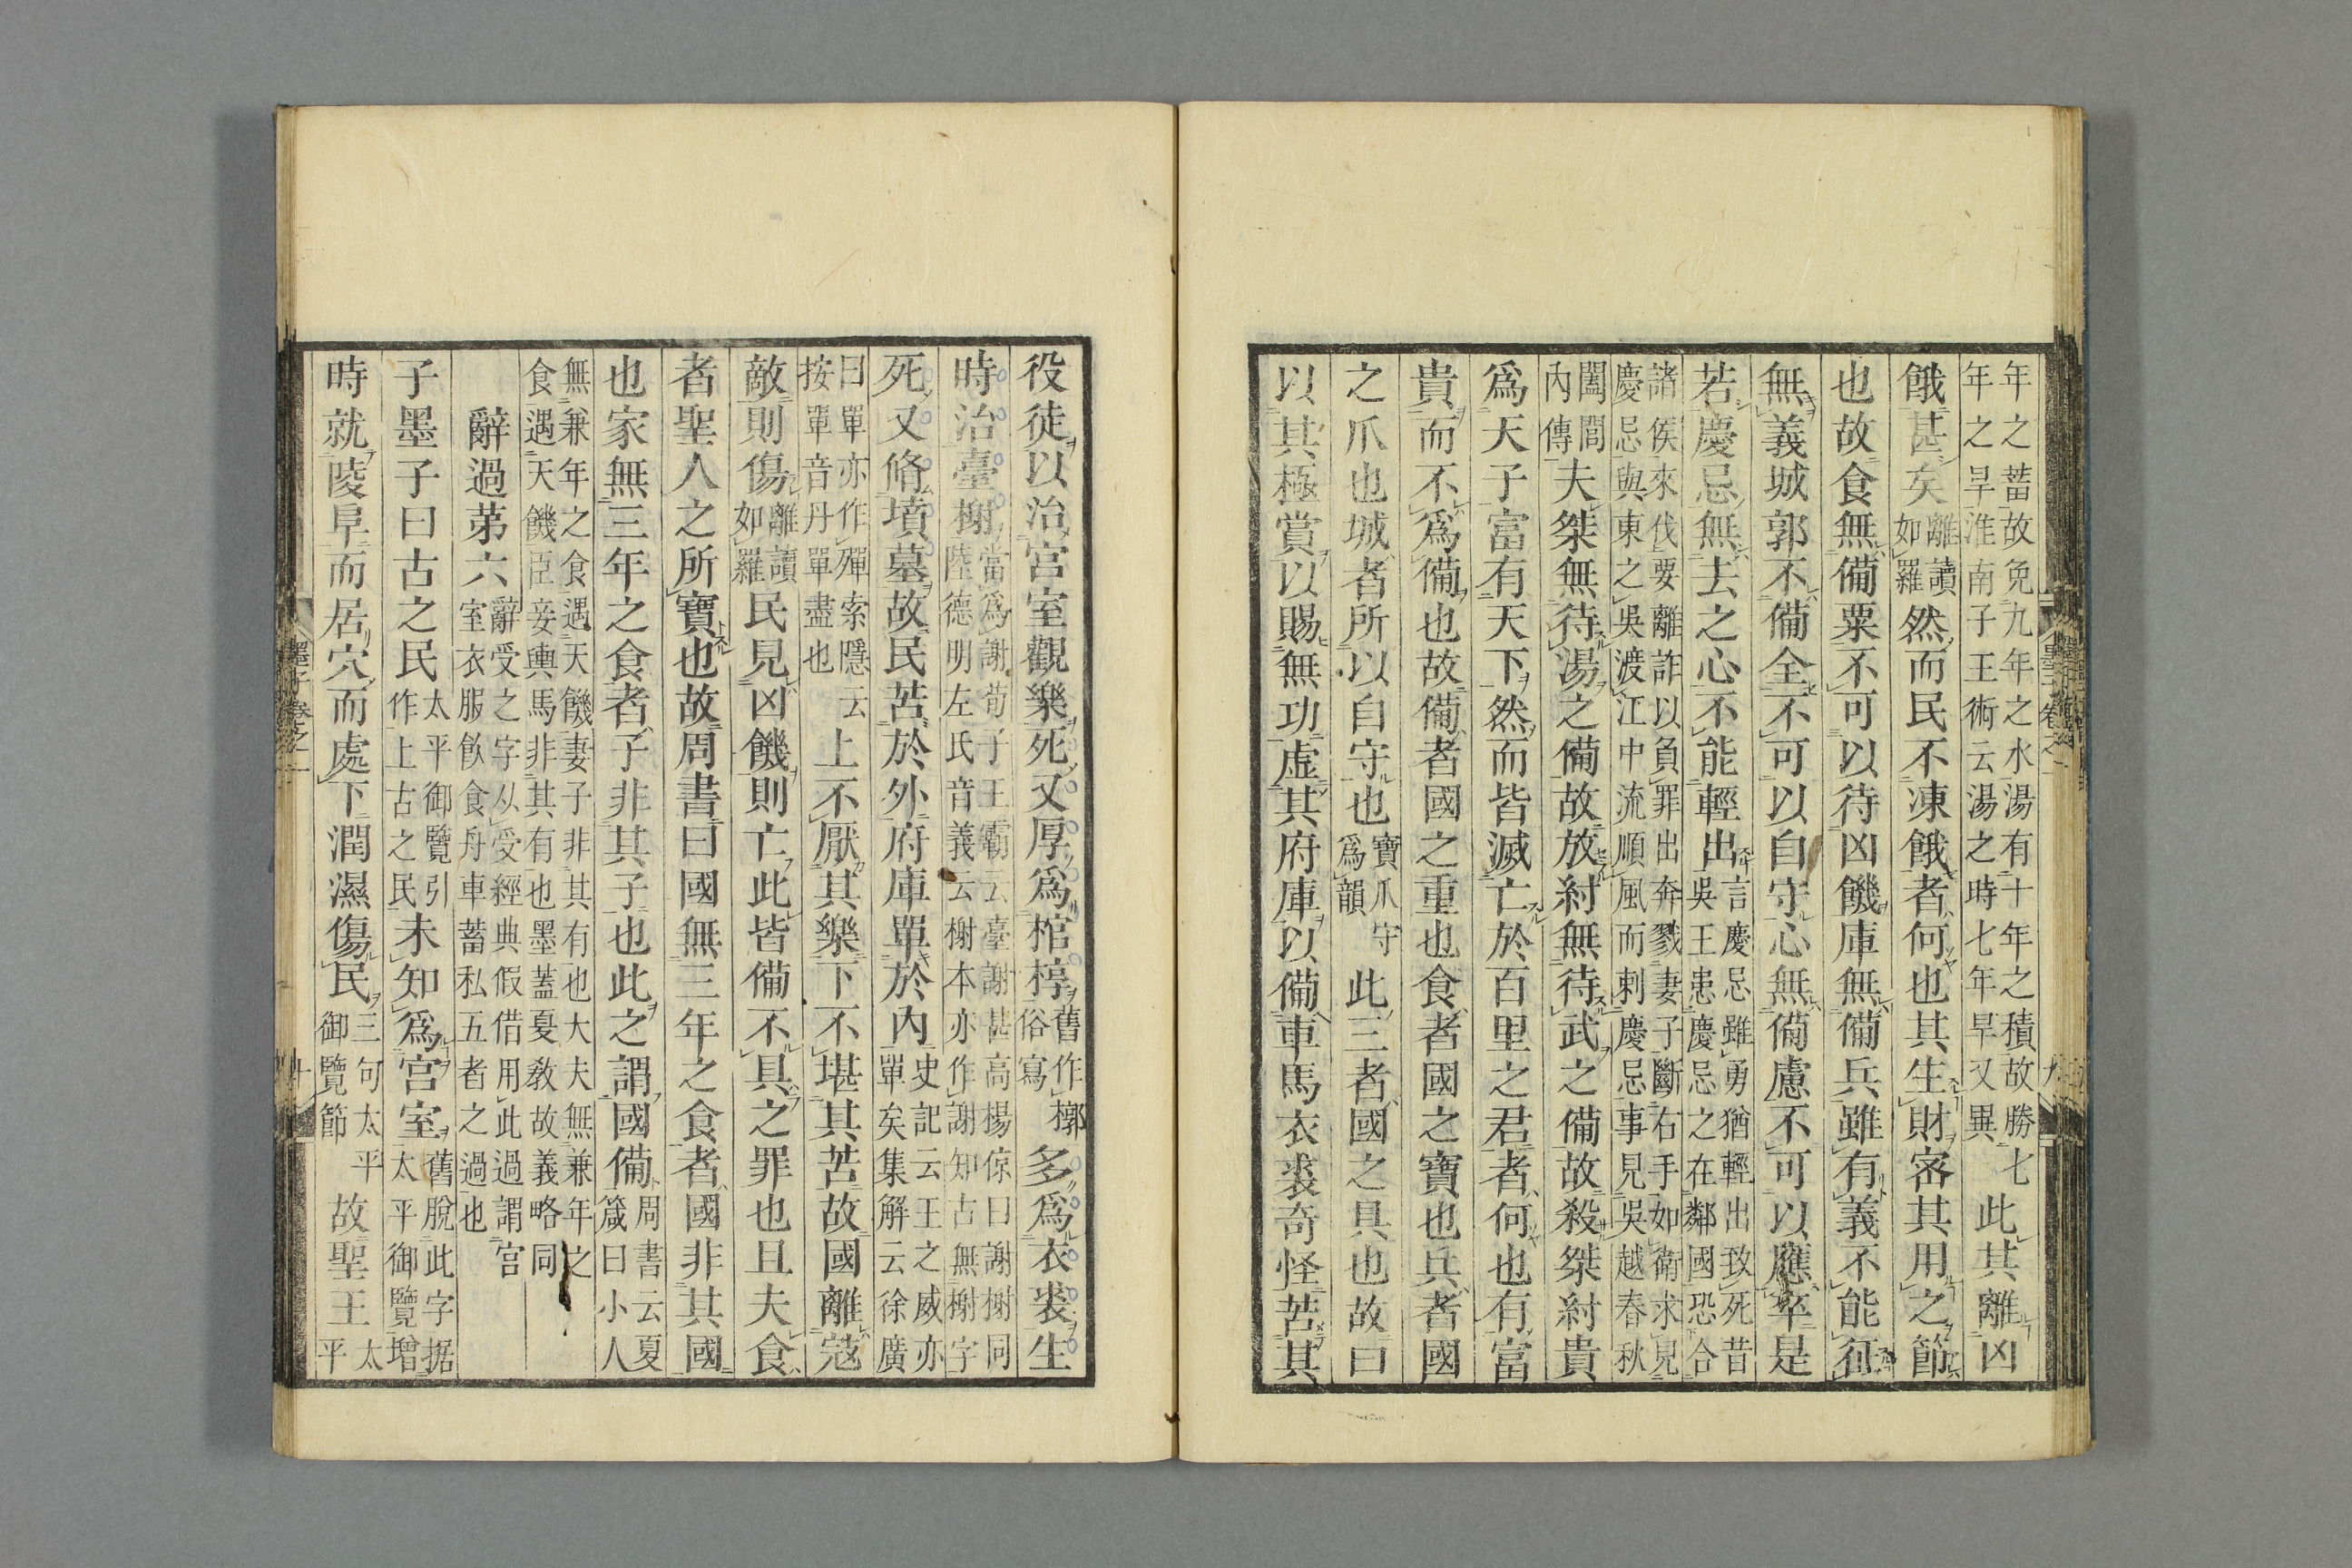 年之蓄故免九年之水湯有十年之積故勝七
年之旱淮南子王術云湯之時七年旱又異此其離凶
餓甚矣離讀如羅然而民不凍餓者何也其生財密其用之節
也故食無備粟不可以待凶饑庫無備兵雖有義不能征
無義城郭不備全不可以自守心無備慮不可以應卒是
若慶忌無去之心不能輕出言慶忌雖勇猶輕出致死昔吳王患慶忌之在鄰國恐合
諸侯來伐要離詐以負罪出奔戮妻子斷右手如衛求見慶忌與東之吳渡江中流順風而刺慶忌事見吳越春秋
闔閭內傳夫桀無待湯之備故放紂無待武之備故殺桀紂貴
爲天子富有天下然而皆滅亡於百里之君者何也有富
貴而不爲備也故備者國之重也食者國之寶也兵者國
之爪也城者所以自守也寶爪守爲韻此三者國之具也故曰
以其極賞以賜無功虛其府庫以備車馬衣裘奇怪苦其
墨子卷之一
九
役徒以治宮室觀樂死又厚爲棺椁舊作槨俗寫多爲衣裘生
時治臺榭當爲謝荀子王霸云臺謝甚高楊倞曰謝榭同陸德明左氏音義云榭本亦作謝知古無榭字
死又脩墳墓故民苦於外府庫單於內史記云王之威亦單矣集解云徐廣
曰單亦作殫索隱云按單音丹單盡也上不厭其樂下不堪其苦故國離寇
敵則傷離讀如羅民見凶饑則亡此皆備不具之罪也且夫食
者聖人之所寶也故周書曰國無三年之食者國非其國
也家無三年之食者子非其子也此之謂國備周書云夏箴曰小人
無兼年之食遇天饑妻子非其有也大夫無兼年之食遇天饑臣妾輿馬非其有也墨蓋夏教故義略同
辭過第六辭受之字从受經典假借用此過謂宮室衣服飲食舟車蓄私五者之過也
子墨子曰古之民太平御覽引作上古之民未知爲宮室舊脫此字据太平御覽增
時就陵阜而居穴而處下潤濕傷民三句太平御覽節故聖王太平
墨子卷之一
十